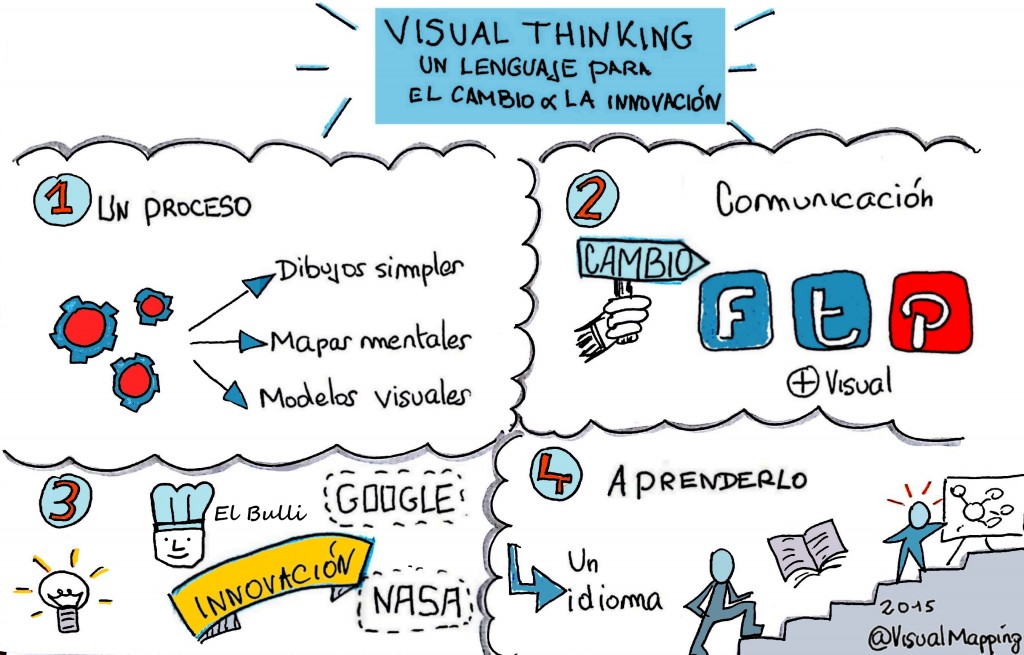 VISUAL THINKING
UN LENGUAJE PARA
EL CAMBIO & LA INNOVACIÓN
1 UN PROCESO
Dibujos simples
Mapas mentales
Modelos visuales
2 Comunicación
CAMBIO
f t P
+ Visual
3
El Bulli
GOOGLE
INNOVACIÓN
NASA
4 APRENDERLO
Un
idioma
2015
@VisualMapping